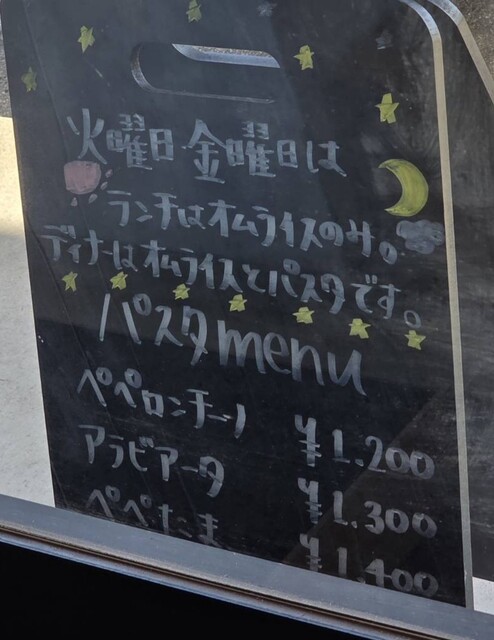 火曜日 金曜日は
ランチはオムライスのみ。
ディナーはオムライスとパスタです。
パスタmenu
ペペロンチーノ ¥1.200
アラビアータ ¥1.300
ペペたま ¥1.400